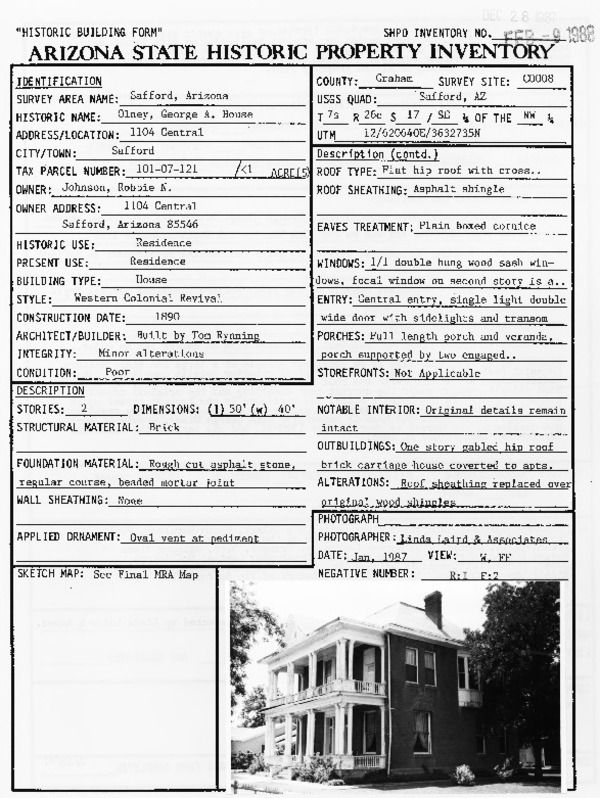 DEC 28 1987
"HISTORIC BUILDING FORM" SHPO INVENTORY NO. FEB -9 1988
ARIZONA STATE HISTORIC PROPERTY INVENTORY
IDENTIFICATION
SURVEY AREA NAME: Safford, Arizona
HISTORIC NAME: Olney, George A. House
ADDRESS/LOCATION: 1104 Central
CITY/TOWN: Safford
TAX PARCEL NUMBER: 101-07-121 /<1 ACRE(S)
OWNER: Johnson, Robbie N.
OWNER ADDRESS: 1104 Central
Safford, Arizona 85546
HISTORIC USE: Residence
PRESENT USE: Residence
BUILDING TYPE: House
STYLE: Western Colonial Revival
CONSTRUCTION DATE: 1890
ARCHITECT/BUILDER: Built by Tom Rynning
INTEGRITY: Minor alterations
CONDITION: Poor
DESCRIPTION
STORIES: 2 DIMENSIONS: (l) 50' (w) 40'
STRUCTURAL MATERIAL: Brick
FOUNDATION MATERIAL: Rough cut asphalt stone,
regular course, beaded mortar joint
WALL SHEATHING: None
APPLIED ORNAMENT: Oval vent at pediment
SKETCH MAP: See Final MRA Map
COUNTY: Graham SURVEY SITE: C0008
USGS QUAD: Safford, AZ
T 7s R 26e S 17 / SE ¼ OF THE NW ¼
UTM 12/620640E/3632735N
Description (contd.)
ROOF TYPE: Flat hip roof with cross..
ROOF SHEATHING: Asphalt shingle
EAVES TREATMENT: Plain boxed cornice
WINDOWS: 1/1 double hung wood sash win-
dows, focal window on second story is a..
ENTRY: Central entry, single light double
wide door with sidelights and transom
PORCHES: Full length porch and veranda,
porch supported by two engaged..
STOREFRONTS: Not Applicable
NOTABLE INTERIOR: Original details remain
intact
OUTBUILDINGS: One story gabled hip roof
brick carriage house coverted to apts.
ALTERATIONS: Roof sheathing replaced over
original wood shingles
PHOTOGRAPH
PHOTOGRAPHER: Linda Laird & Associates
DATE: Jan, 1987 VIEW: W, FF
NEGATIVE NUMBER: R:I F:2